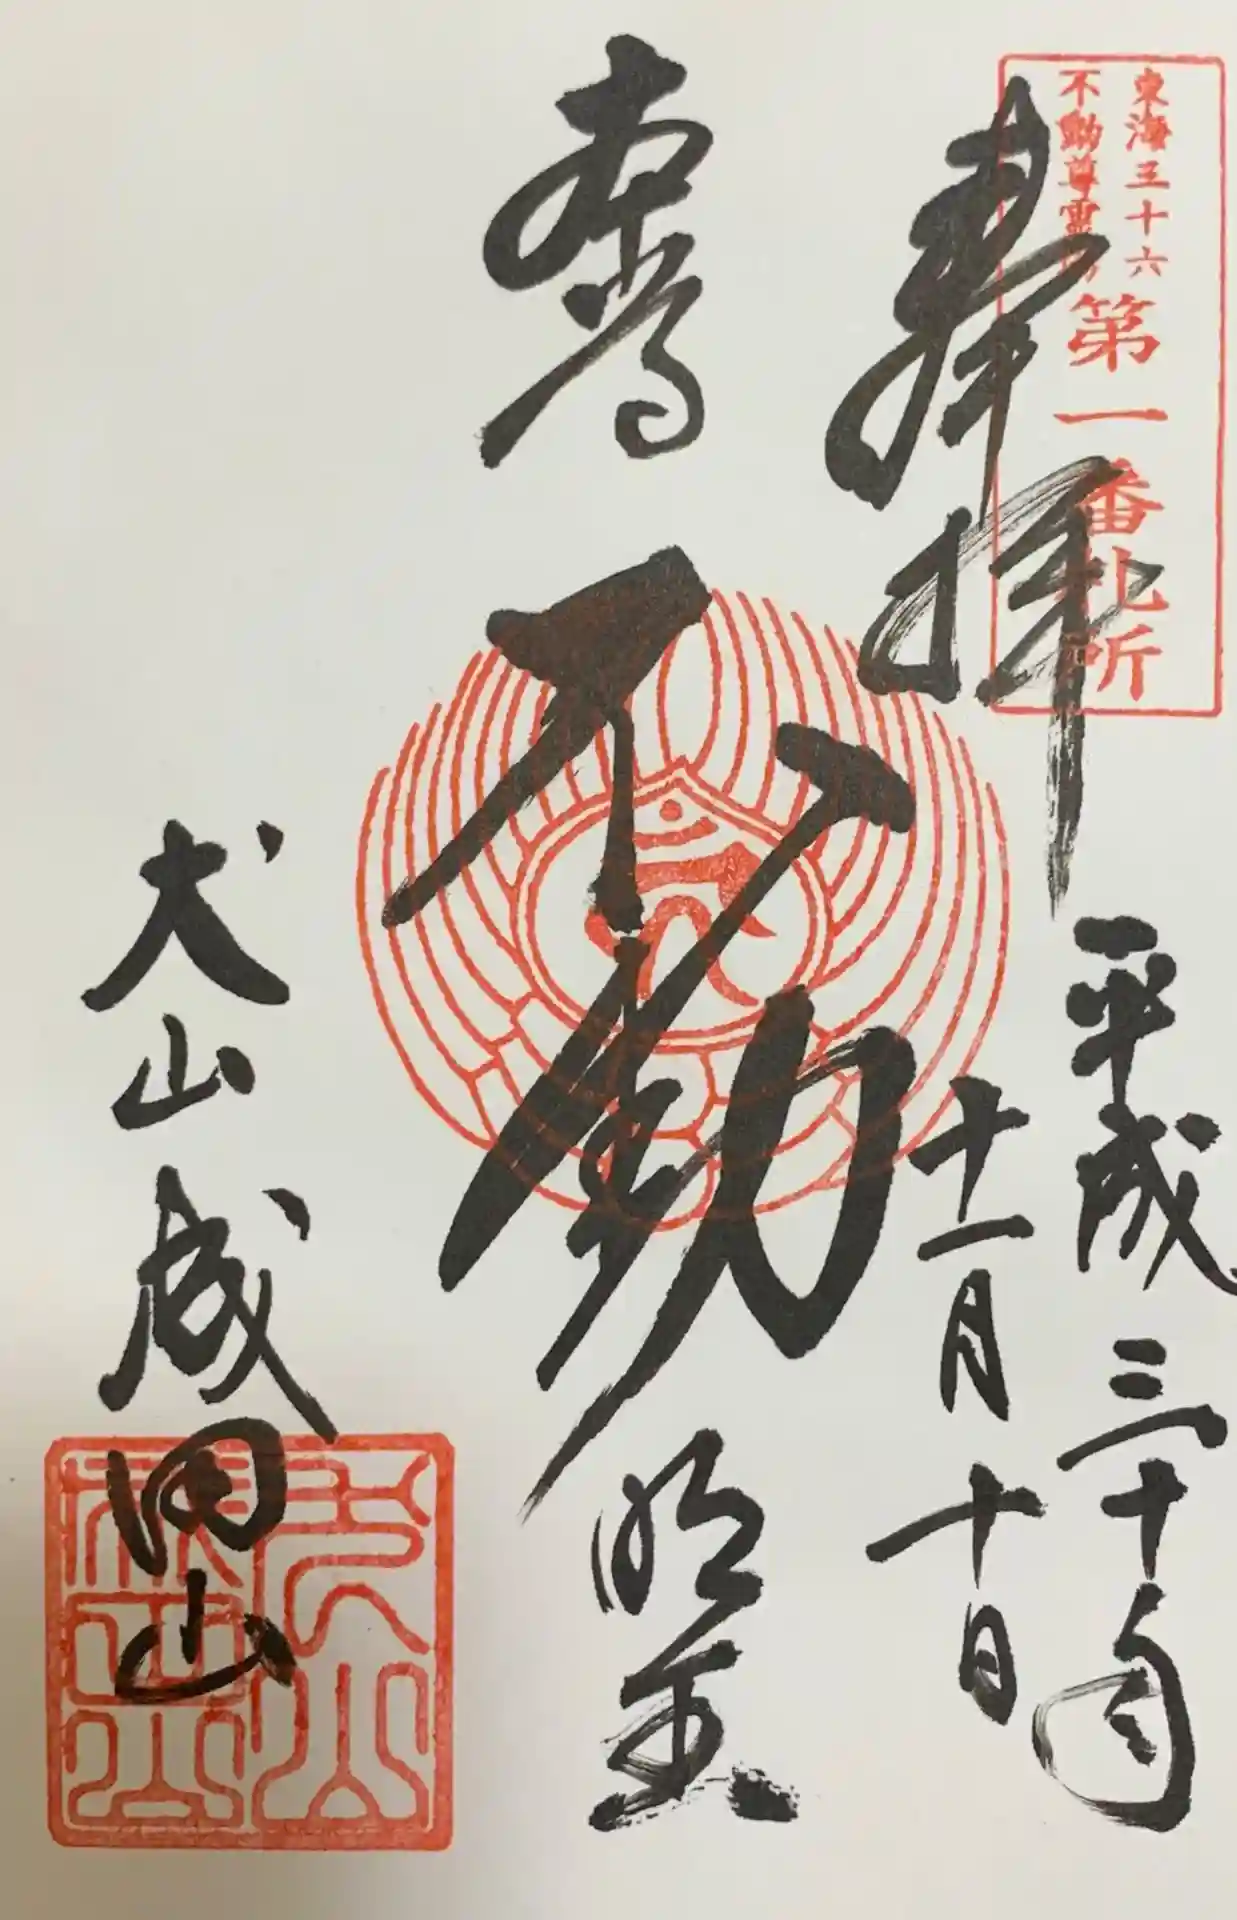 東海三十六
不動尊霊場
第一番札所
奉拝
平成三十年
十一月十日
本尊
不動明王
犬山成田山